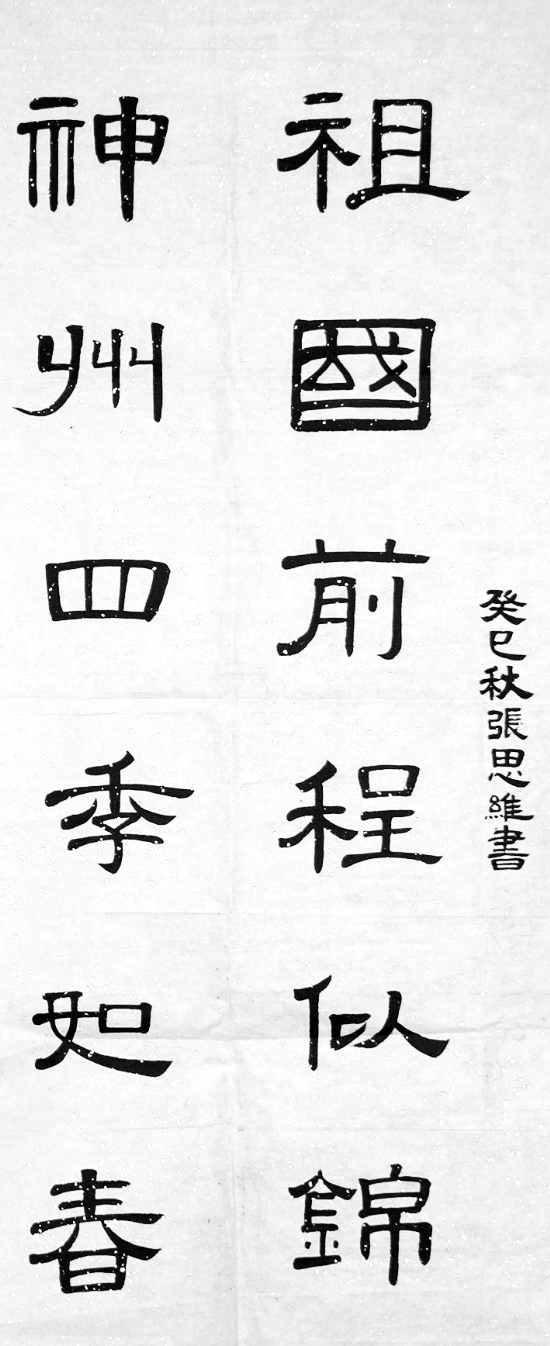 祖國前程似錦
神州四季如春
癸巳秋張思維書